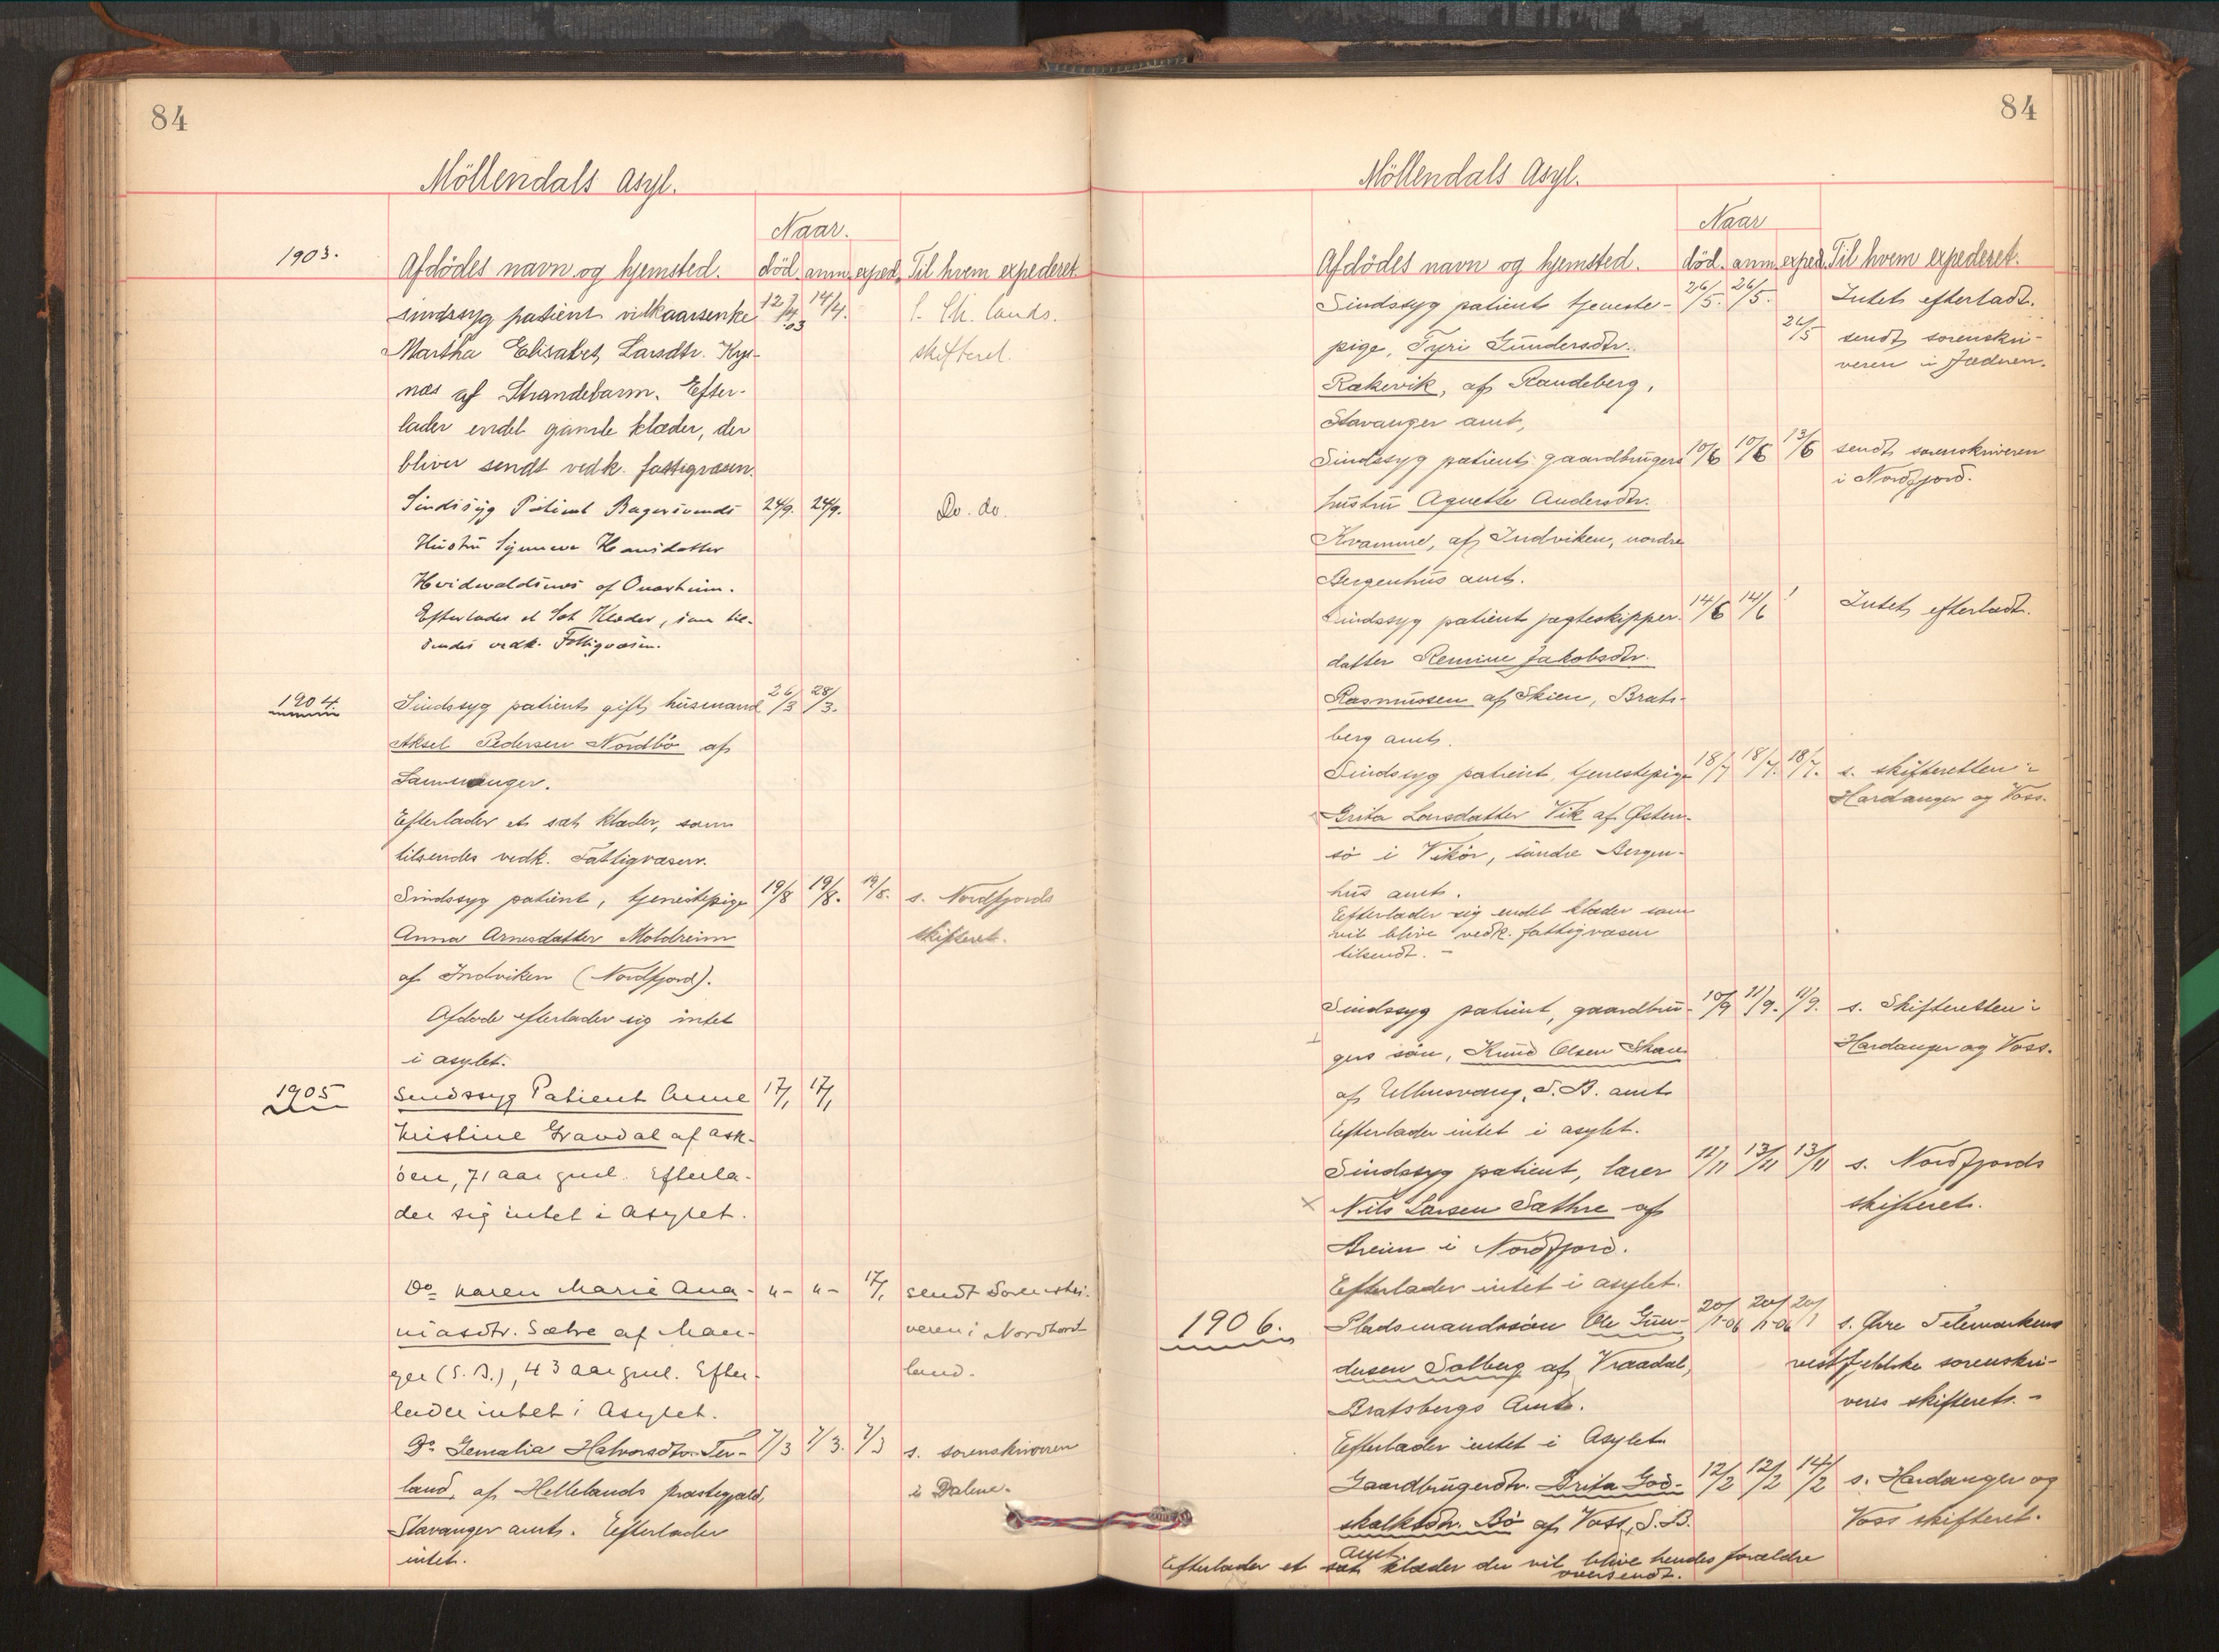 84
Möllendals Asyl.
Naar.
1903.
Afdödes navn og hjemsted. död. anm. exped. Til hvem expederet.
sindssyg patient vilkaarsenke 12/4 03 14/4. S. Sh. lands.
Martha Elisabet Larsdtr. skifteret.
næs af Strandebarm. Efter-
lader endel gamle klæder, der
bliver sendt vedk. fattigvæsen.
Sindssyg Patient Bagersvends 24/9. 24/9. Do. do.
Hustru Synneve Hansdatter
af
Efterlader et Set Klæder, som til-
sendes vedk. Fattigvæsen.
1904. Sindssyg patient gift husmand 26/3 28/3.
Aksel Pedersen Nordbö af
Samnanger.
Efterlader et sæt klæder, som
tilsendes vedk. Fattigvæsen.
Sindssyg patient, tjenestepige 19/8 19/8. 19/8. s. Nordfjords
Anna Arnesdatter Moldreim skifteret.
af Indviken (Nordfjord).
Afdöde efterlader sig intet
i asylet.
1905 Sindssyg Patient Anne 17/1 17/1
Kristine Gravdal af Ask-
öen, 71 aar gml. Efterla-
der sig intet i Asylet.
Do Karen Marie Ana- "- "- 17/1 sendt Sorenskri-
niasdtr. Sætre af Man- veren i Nordhord-
ger (S. B.), 43 aar gml. Efter- land.
lader intet i Asylet.
Do Gemalia Halvorsdtr. Ter- 7/3 7/3. 7/3 s. sorenskriveren
land, af Hellelands præstegjæld, i Dalene.
Stavanger amt. Efterlader
intet.
84
Möllendals Asyl.
Naar
Afdödes navn og hjemsted. död. anm. exped. Til hvem expederet.
Sindssyg patient tjeneste- 26/5. 26/5. Intet efterladt.
pige, Tyri Gundersdtr. 26/5 sendt sorenskri-
veren i Jæderen.
Rakevik, af Randeberg,
Stavanger amt,
Sindssyg patient gaardbrugers 10/6 10/6 13/6 sendt sorenskriveren
i Nordfjord.
hustru Agnethe Andersdtr.
Kvamme, af Indviken, nordre
Bergenhus amt.
Sindssyg patient jagteskipper- 14/6 14/6 Intet efterladt.
datter Remine Jakobsdtr.
Rasmussen af Skien, Brats-
berg amt.
Sindssyg patient, tjenestepige 18/7 18/7. 18/7. s. skifteretten i
Hardanger og Voss.
Brita Larsdatter Vik af Östen-
sö i Vikör, söndre Bergen-
hus amt.
Efterlader sig endel klæder som
vil blive vedk. fattigvæsen
tilsendt. -
Sindssyg patient, gaardbru- 10/9 11/9. 11/9. s. Skifteretten i
gers sön, Knud Olsen Hardanger og Voss.
af Ullensvang, S. B. amt
Efterlader intet i asylet.
Sindssyg patient, lærer 11/11 13/11 13/11 s. Nordfjords
x Nils Larsen Sæthre af skifteret.
Breim i Nordfjord.
Efterlader intet i asylet.
1906. Pladsmandssön Ole Gun- 20/1-06 20/1-06 20/1 s. Övre Telemarkens
dersen Solberg af Vraadal, vestfjeldske sorenskri-
Bratsbergs Amt. vers skifteret. -
Efterlader intet i Asylet.
Gaardbrugerdtr. Brita God- 12/2 12/2 14/2 s. Hardanger og
skalksdtr. Bö af Voss, S. B. Voss skifteret.
amt.
Efterlader et sæt klæder der vil blive hendes forældre
oversendt.